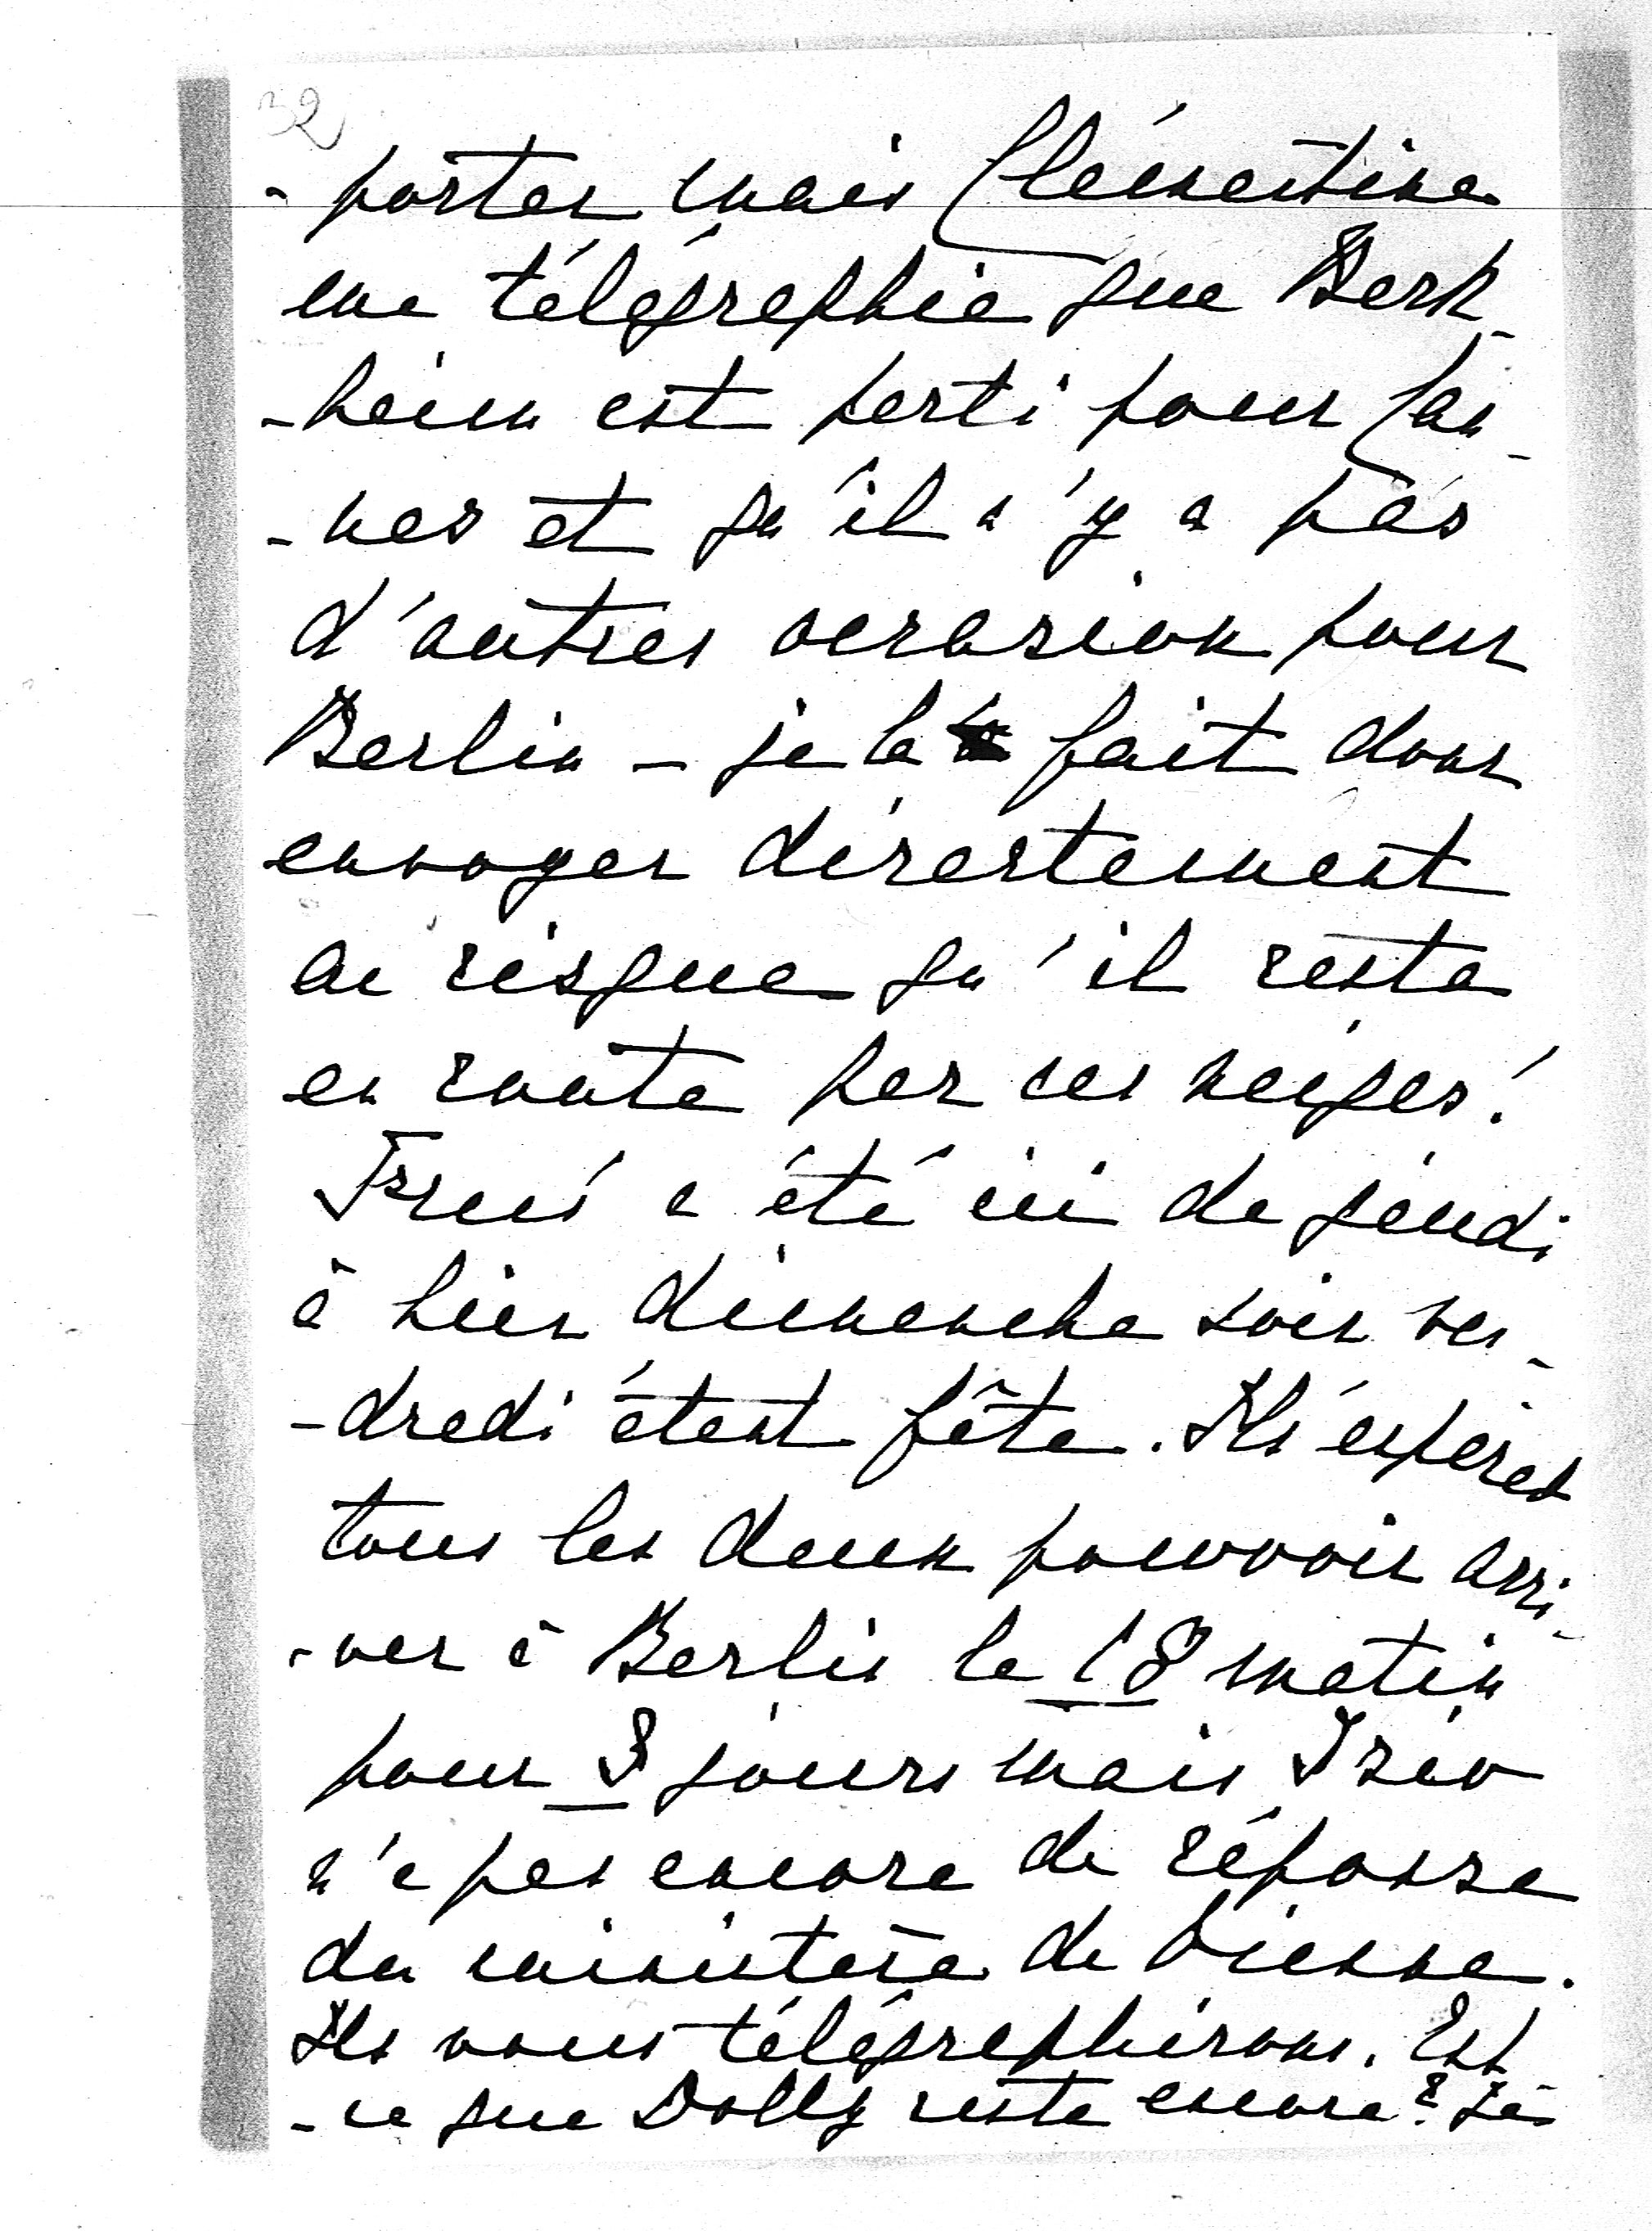 32
-porter mais Clémentine
me télégraphie que Berk-
-heim est parti pour Can-
-nes et qu'il n'y a pas
d'autres occasion pour
Berlin - je le fait donc
envoyer directement
au risque qu'il reste
en route par ces neiges!
a été ici de jeudi
à hier dimanche soir ven-
-dredi étant fête. Ils espèrent
tous les deux pouvoir arri-
-ver à Berlin le 18 matin
pour 8 jours mais
n'a pas encore de réponse
du ministère de Vienne.
Ils vous télégraphirons. Est
-ce que Dolly reste encore?